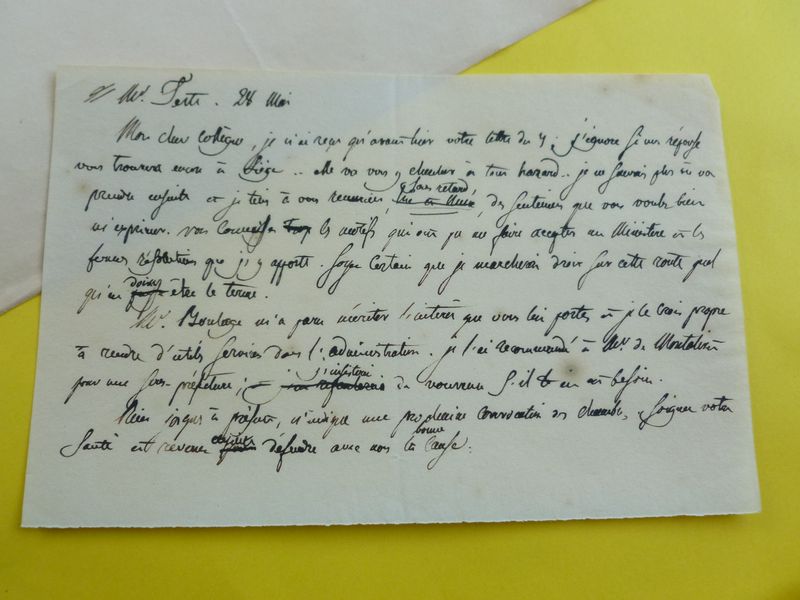 à Mr. Teste. 28 Mai
Mon cher collègue, je n'ai reçu qu'avant hier votre lettre du 4; j'ignore si ma réponse
vous trouvera encore à Liège.. elle va vous y chercher à tout hazard.. je ne savais plus où vous
prendre ensuite et je tiens à vous remercier, sans retard, des sentimens que vous voulez bien
m'exprimer. vous connaissez les motifs qui ont pu me faire accepter un Ministère et les
fermes résolutions que j'y apporte. Soyez certain que je marcherai droit sur cette route quel
qu'en doive être le terme.
Mr. Boulage m'a paru mériter l'intérêt que vous lui portez et je le crois propre
à rendre d'utiles services dans l'administration. je l'ai recommandé à Mr. de Montalivet
pour une sous-préfecture; j'insisterai de nouveau s'il en est besoin.
Rien jusqu'à présent, n'indique une prochaine convocation des chambres, soignez votre
santé et revenez ensuite défendre avec nous la bonne cause.